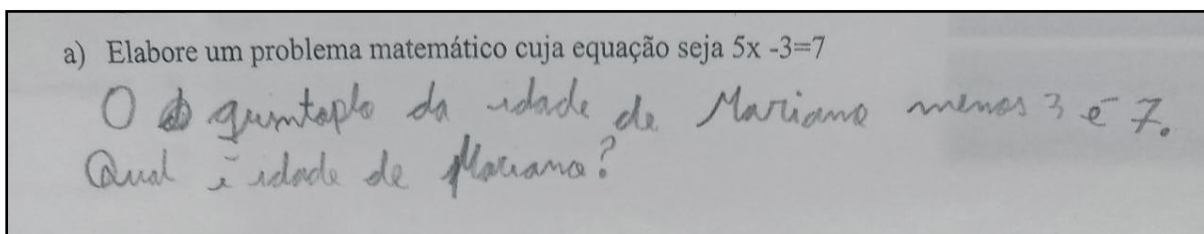 a) Elabore um problema matemático cuja equação seja 5x -3=7
O quintoplo da idade de Mariano menos 3 é 7.
Qual é idade de Mariano?